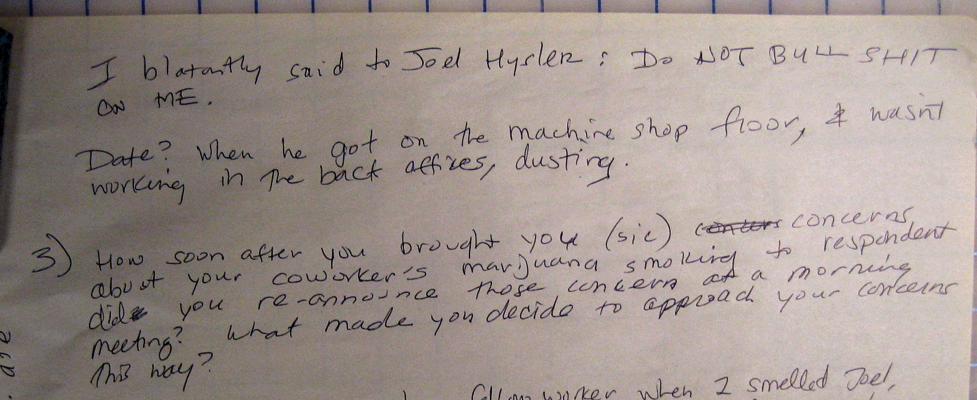 I blatantly said to Joel Hysler : DO NOT BULL SHIT
ON ME.
Date? When he got on the machine shop floor, & wasn't
working in the back offices, dusting.
3) How soon after you brought you (sic) concerns
about your coworker's marjuana smoking to respondent
did you re-announce those concern at a morning
meeting? What made you decide to approach your concerns
this way?
worker when I smelled Joel,